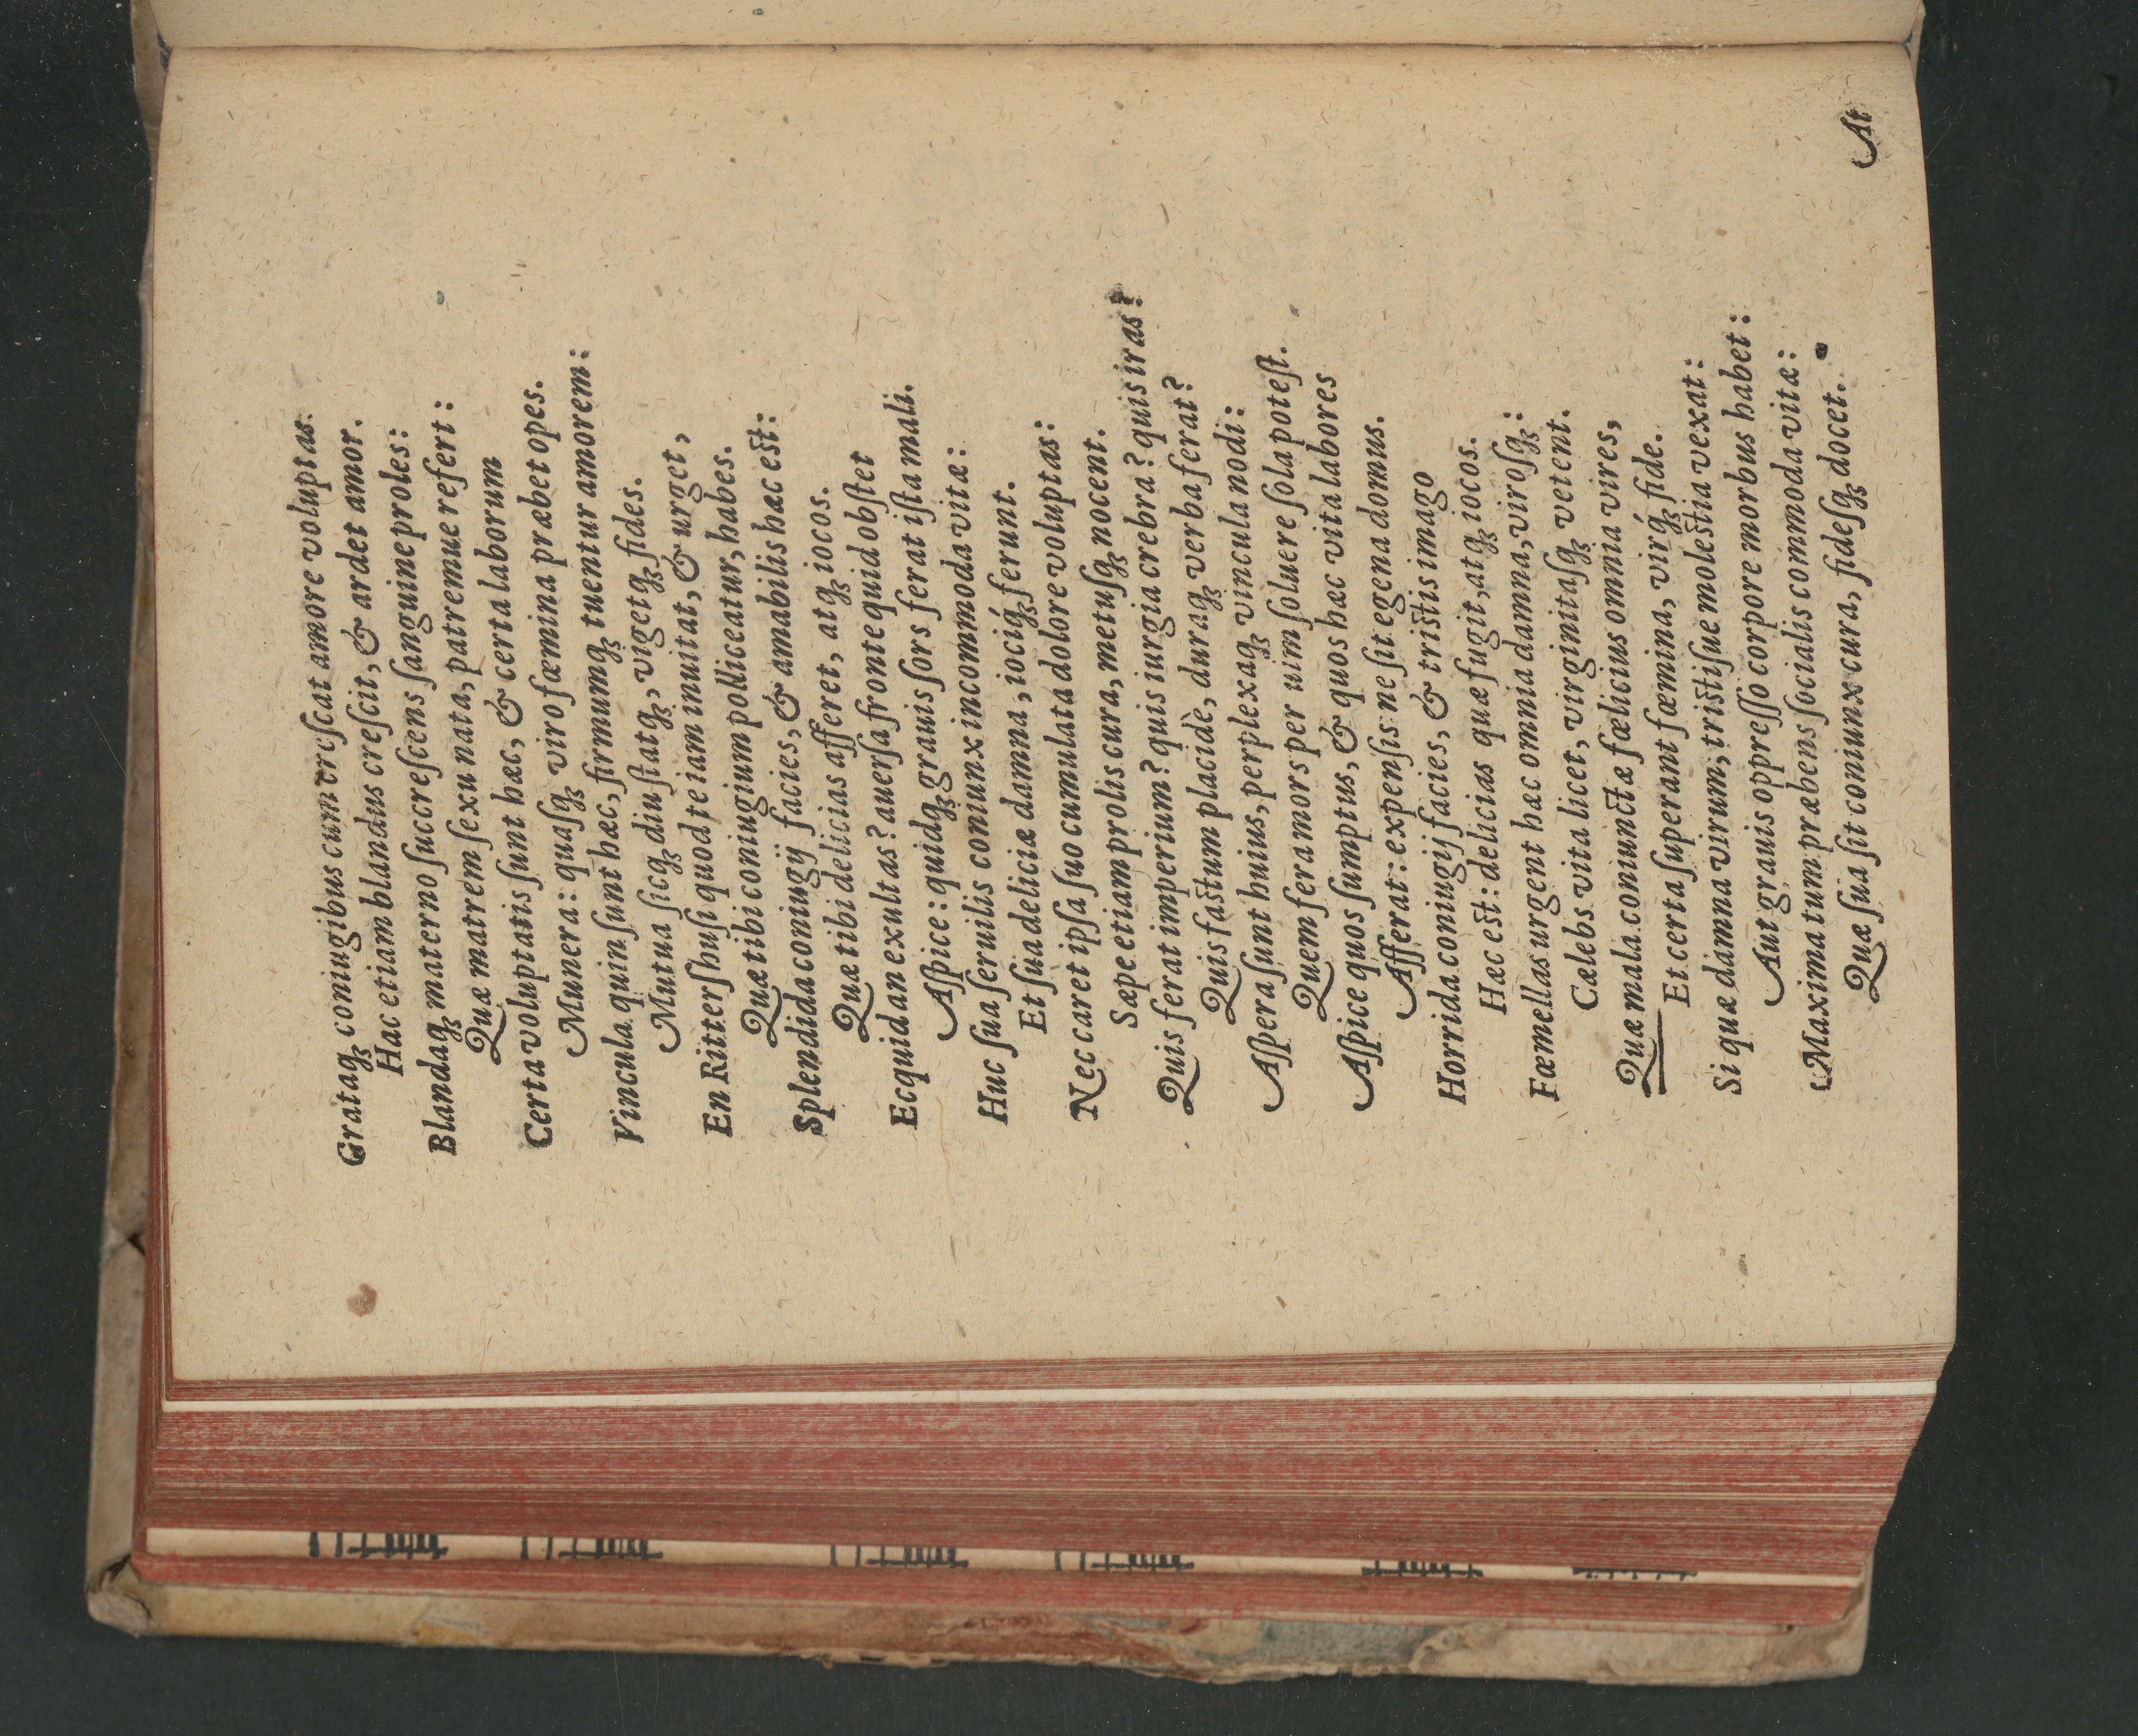 Grataqꝫ coniugibus cum creſcat amore voluptas.
Hac etiam blandus creſcit, & ardet amor.
Blandaqꝫ materno ſuccreſcens ſanguine proles:
Quæ matrem ſexu nata, patremue refert:
Certa voluptatis ſunt hæc, & certa laborum
Munera: quaſqꝫ viro fœmina præbet opes.
Vincula quin ſunt hæc, firmumqꝫ tuentur amorem:
Mutua ſicqꝫ diu ſtatqꝫ, vigetqꝫ fides.
En Ritterſhuſi quod te iam inuitat, & urget,
Quæ tibi coniugium polliceatur, habes.
Splendida coniugij facies, & amabilis hæc est:
Quæ tibi delicias afferet, atqꝫ iocos.
Ecquid an exultas? auerſa fronte quid obſtet
Aſpice: quidqꝫ grauis ſors ferat iſta mali.
Huc ſua ſeruilis coniunx incommoda vitæ:
Et ſua deliciæ damna, iociq́ꝫ ferunt.
Nec caret ipſa ſuo cumulata dolore voluptas:
Sæpe etiam prolis cura, metuſqꝫ nocent.
Quis ferat imperium? quis iurgia crebra? quis iras?
Quis fastum placidè, duraqꝫ verba ferat?
Aſpera ſunt huius, perplexaqꝫ vincula nodi:
Quem fera mors per uim ſoluere ſola poteſt.
Aſpice quos ſumptus, & quos hæc vita labores
Afferat: expenſis ne ſit egena domus.
Horrida coniugij facies, & tristis imago
Hæc est: delicias quæ fugit, atqꝫ iocos.
Fœmellas urgent hæc omnia damna, viroſqꝫ:
Cælebs vita licet, virginitaſqꝫ vetent.
Quæ mala coniunctæ fœlicius omnia vires,
Et certa ſuperant fœmina, virq́ꝫ fide.
Si quæ damna virum, tristiſue molestia vexat:
Aut grauis oppreſſo corpore morbus habet:
Maxima tum præbens ſocialis commoda vitæ:
Quæ ſua ſit coniunx cura, fideſqꝫ docet.
At